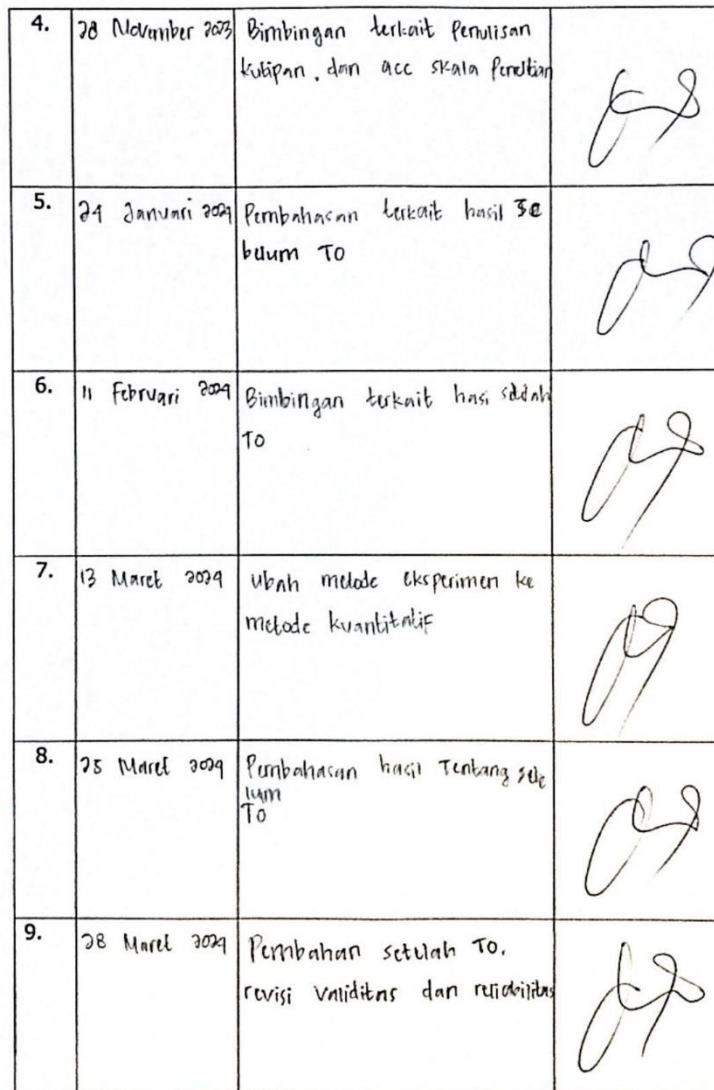 4. 28 November 2023 Bimbingan terkait Penulisan
kutipan, dan acc skala Penelitian
5. 24 Januari 2024 Pembahasan terkait hasil se
belum TO
6. 11 Februari 2024 Bimbingan terkait hasi sudah
TO
7. 13 Maret 2024 ubah metode eksperimen ke
metode kuantitatif
8. 25 Maret 2024 Pembahasan hasil Tentang sebe
lum
TO
9. 28 Maret 2024 Pembahan setelah TO.
revisi validitas dan reliabilitas